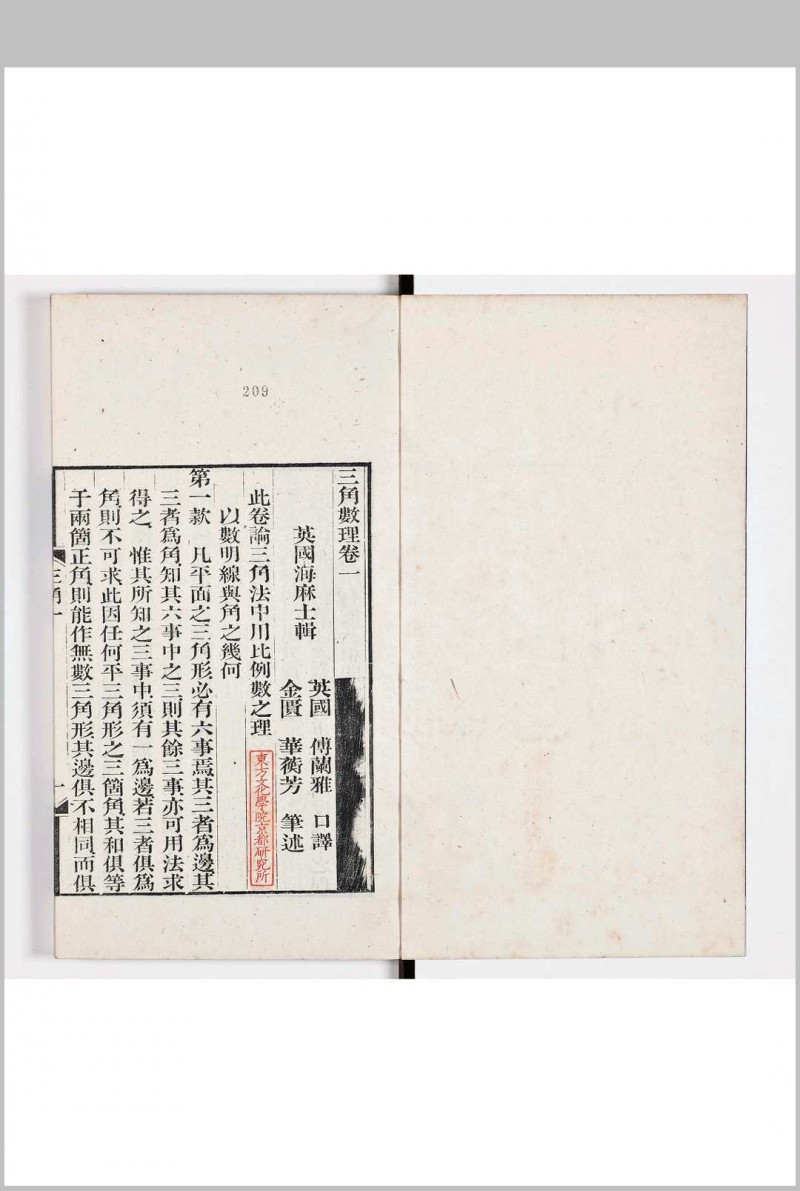 209
三角數理卷一
英國海麻士輯
英國 傅蘭雅 口譯
金匱 華蘅芳 筆述
此卷論三角法中用比例數之理
以數明線與角之幾何
第一款 凡平面之三角形必有六事焉其三者爲邊其
三者爲角知其六事中之三則其餘三事亦可用法求
得之 惟其所知之三事中須有一爲邊若三者俱爲
角則不可求此因任何平三角形之三箇角其和俱等
于兩箇正角則能作無數三角形其邊俱不相同而俱
三角一
一
東方文化學院京都研究所